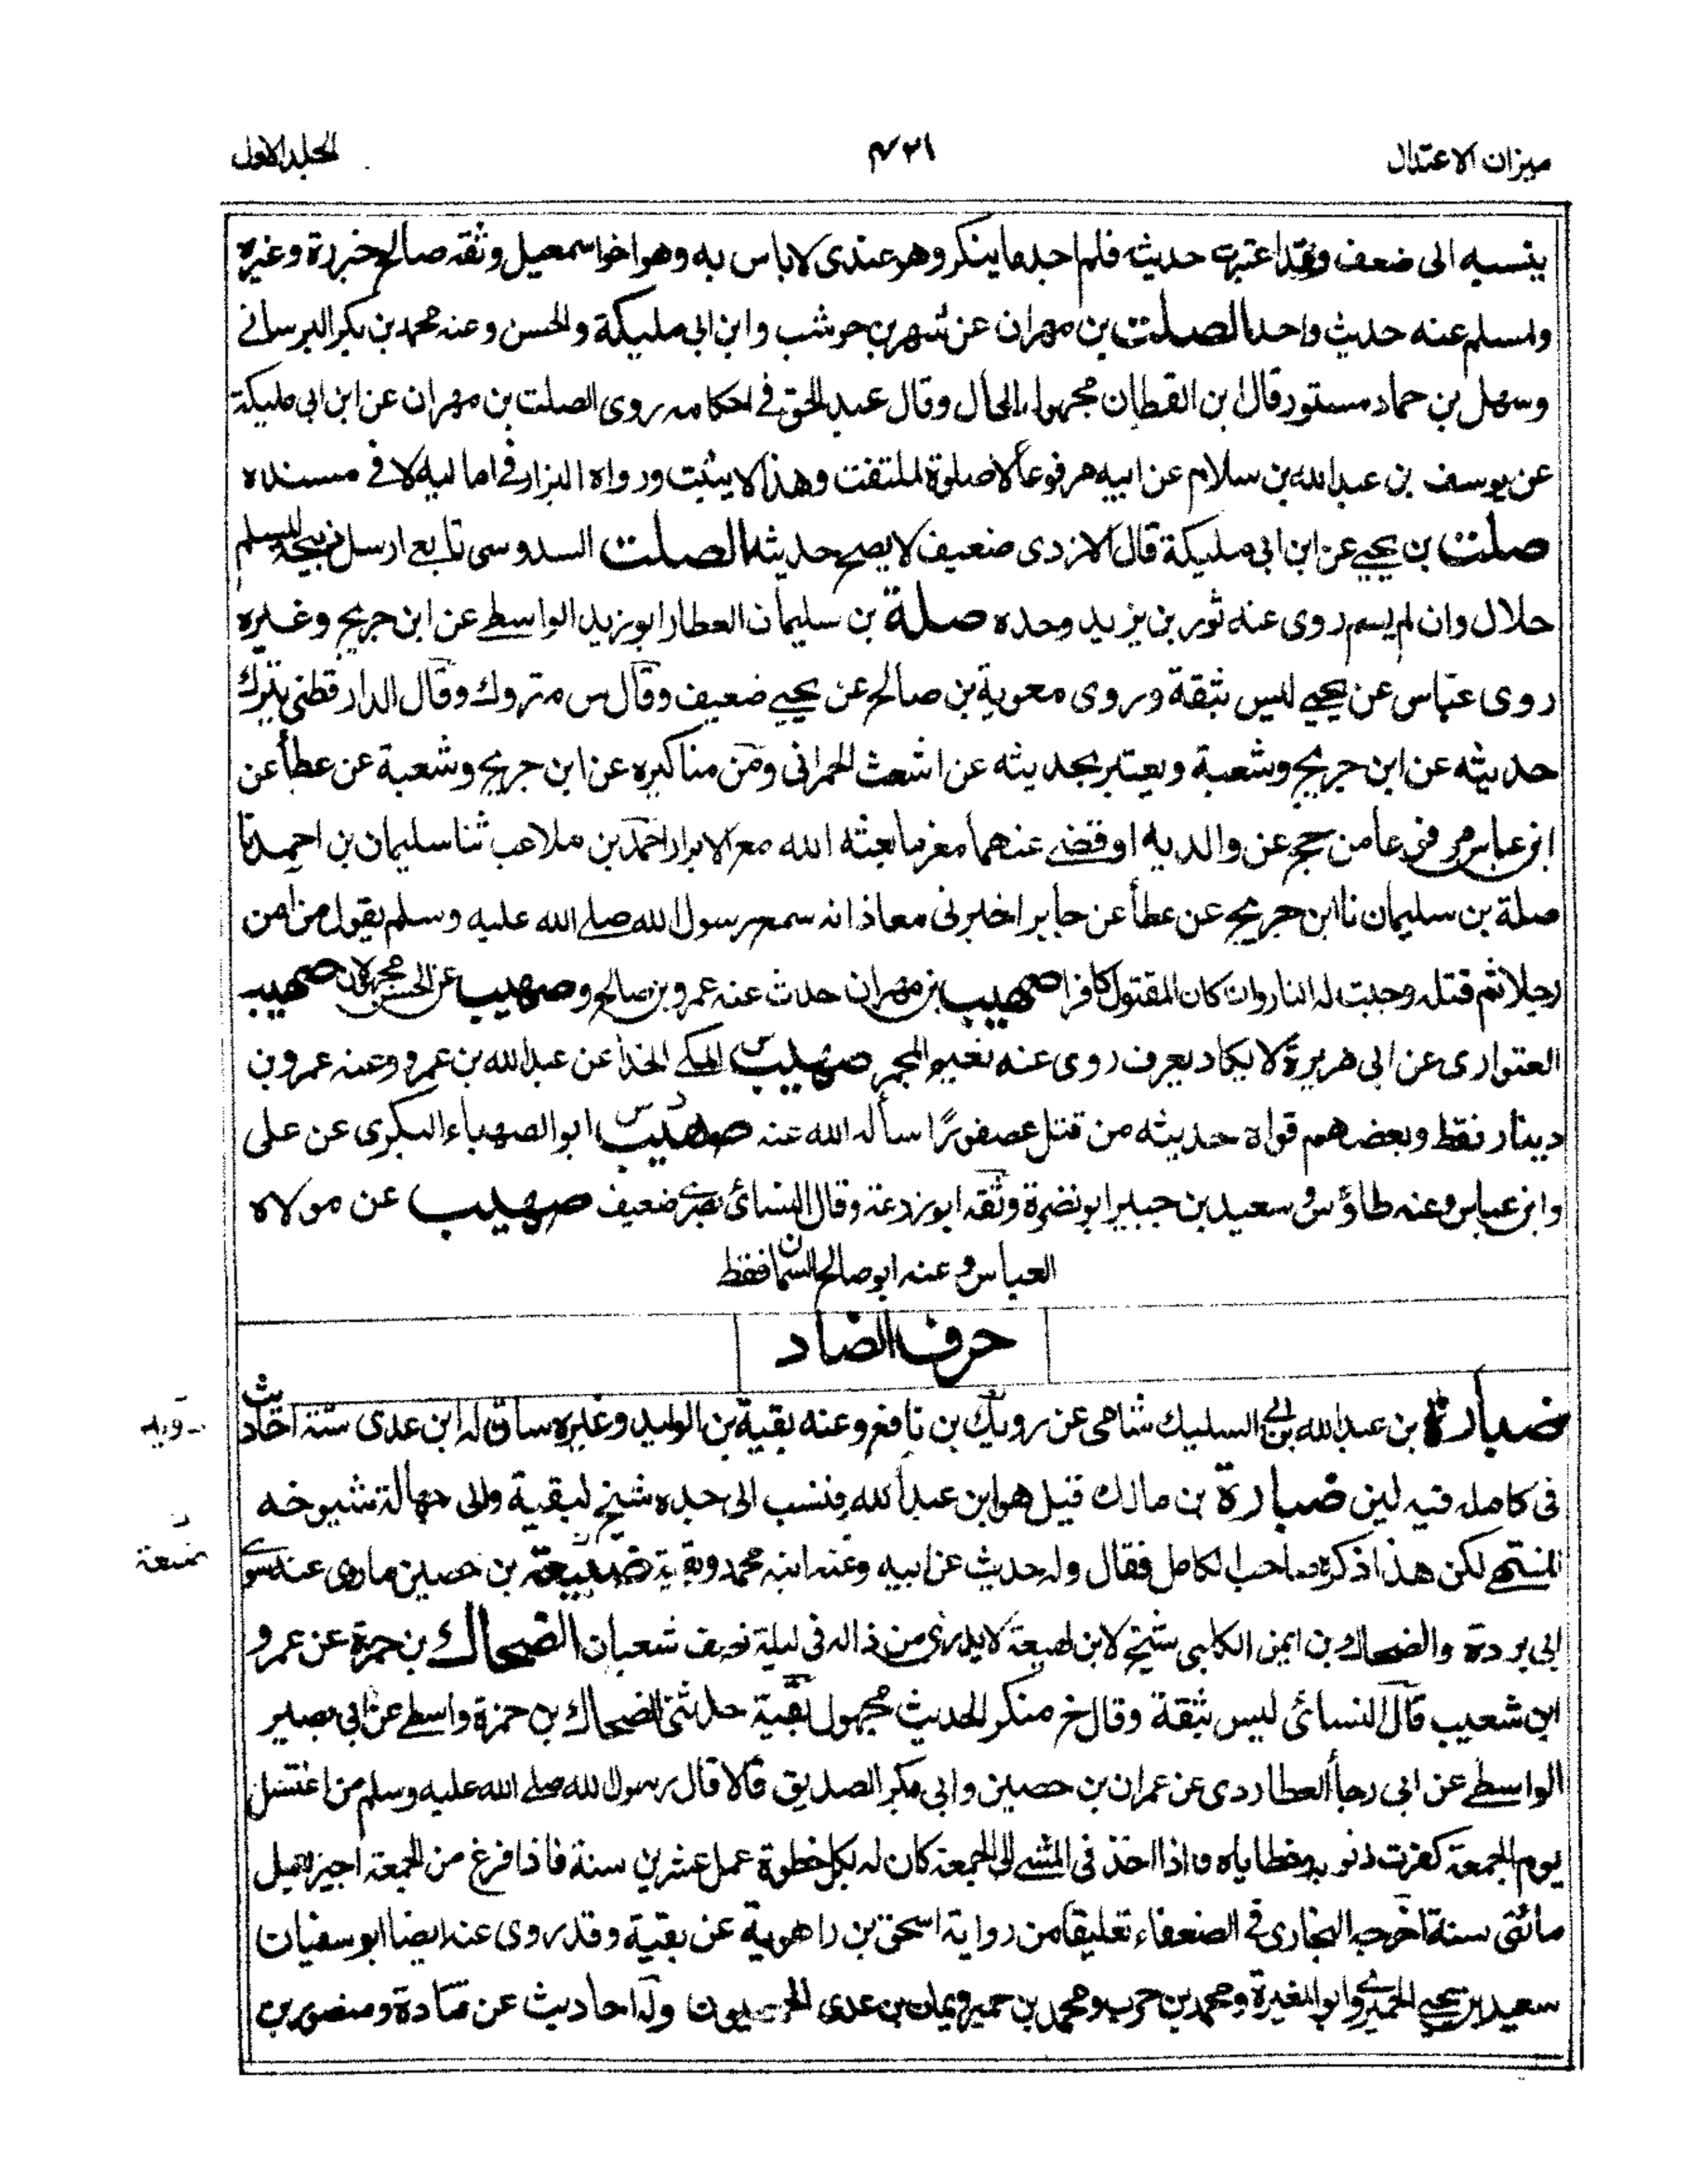 ميزان الاعتدال
٤٢١
الجلد الاول
ينسبه الى ضعف وقد اعتبرت حديثه فلم اجد ما ينكر وهو عندى لا باس به وهو اخو اسمعيل وثقه صالح جزرة وغيره
ولمسلم عنه حديث واحد الصلت بن مهران عن شهر بن حوشب وابن ابى مليكة والحسن وعنه محمد بن بكر البرسانى
وسهل بن حماد مستور قال ابن القطان مجهول الحال وقال عبد الحق فى احكامه روى الصلت بن مهران عن ابن ابى مليكة
عن يوسف بن عبد الله بن سلام عن ابيه مرفوعاً لا صلوة لملتفت وهذا لا يثبت ورواه البزار فى اماليه لا فى مسنده
صلت بن يحيى عن ابن ابى مليكة قال الازدى ضعيف لا يصح حديثه الصلت السدوسى تابع ارسل ذبيحة المسلم
حلال وان لم يسم روى عنه ثور بن يزيد وحده صلة بن سليمان العطار ابو زيد الواسطى عن ابن جريج وغيره
روى عباس عن يحيى ليس بثقة وروى معوية بن صالح عن يحيى ضعيف وقال س متروك وقال الدارقطنى يترك
حديثه عن ابن جريج وشعبة ويعتبر بحديثه عن اشعث الحمرانى ومن مناكيره عن ابن جريج وشعبة عن عطأ عن
ابن عباس مرفوعا من حج عن والديه او قضى عنهما مغرما بعثه الله مع الابرار احمد بن ملاعب ثنا سليمان بن احمد نا
صلة بن سليمان نا ابن جريج عن عطأ عن جابر اخبرنى معاذ انه سمع رسول الله صلى الله عليه وسلم يقول من امن
رجلا ثم قتله وجبت له النار وان كان المقتول كافرا صهيب بن مهران حدث عنه عمرو بن صالح وصهيب عن الحسن مجهولان صهيب
العتوارى عن ابى هريرة لا يكاد يعرف روى عنه نعيم المجمر صهيب س المكى الحذأ عن عبد الله بن عمرو وعنه عمرو بن
دينار فقط وبعضهم قواه حديثه من قتل عصفورًا سأله الله عنه صهيب د س ابو الصهباء البكرى عن على
وابن عباس وعنه طاؤس و سعيد بن جبير ابو نضرة وثقه ابو زرعة وقال النسائى بصرى ضعيف صهيب عن مولاه
العباس و عنه ابو صالح السمان فقط
حرف الضاد
ضبارة بن عبد الله بن ابى السليك شامى عن دويك بن نافع وعنه بقية بن الوليد وغيره ساق له ابن عدى ستة احاديث
فى كامله فيه لين ضبارة بن مالك قيل هو ابن عبد الله فنسب الى جده شيخ لبقية والى جهالة شيوخه
المنتهى لكن هذا ذكره صاحب الكامل فقال وله حديث عن ابيه وعنه ابنه محمد وبقية ضبيعة بن حصين ماروى عنه سوى
ابى بردة والضحاك بن ايمن الكلبى شيخ لابن لهيعة لا يدرى من ذا له فى ليلة نصف شعبان الضحاك بن حمرة عن عمرو
ابن شعيب قال النسائى ليس بثقة وقال خ منكر الحديث مجهول بقية حدثنى الضحاك بن حمزة واسطى عن ابى بصير
الواسطى عن ابى رجأ العطاردى عن عمران بن حصين وابى بكر الصديق قالا قال رسول الله صلى الله عليه وسلم من اغتسل
يوم الجمعة كفرت ذنوبه وخطاياه واذا اخذ فى المشى الى الجمعة كان له بكل خطوة عمل عشرين سنة فاذا فرغ من الجمعة اجيز بعمل
مائتى سنة اخرجه البخارى فى الضعفاء تعليقاً من رواية اسحق بن راهوية عن بقية وقد روى عنه ايضا ابو سفيان
سعيد بن يحيى الحميرى وابو المغيرة ومحمد بن حرب ومحمد بن حمير ويمان بن عدى الحمصيون وله احاديث عن قتادة ومنصور بن